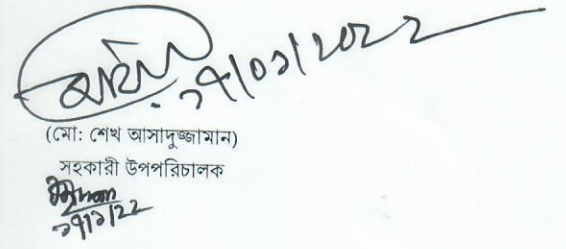 ১৭/০১/২০২২
(মো: শেখ আসাদুজ্জামান)
সহকারী উপপরিচালক
১৭/১/২২